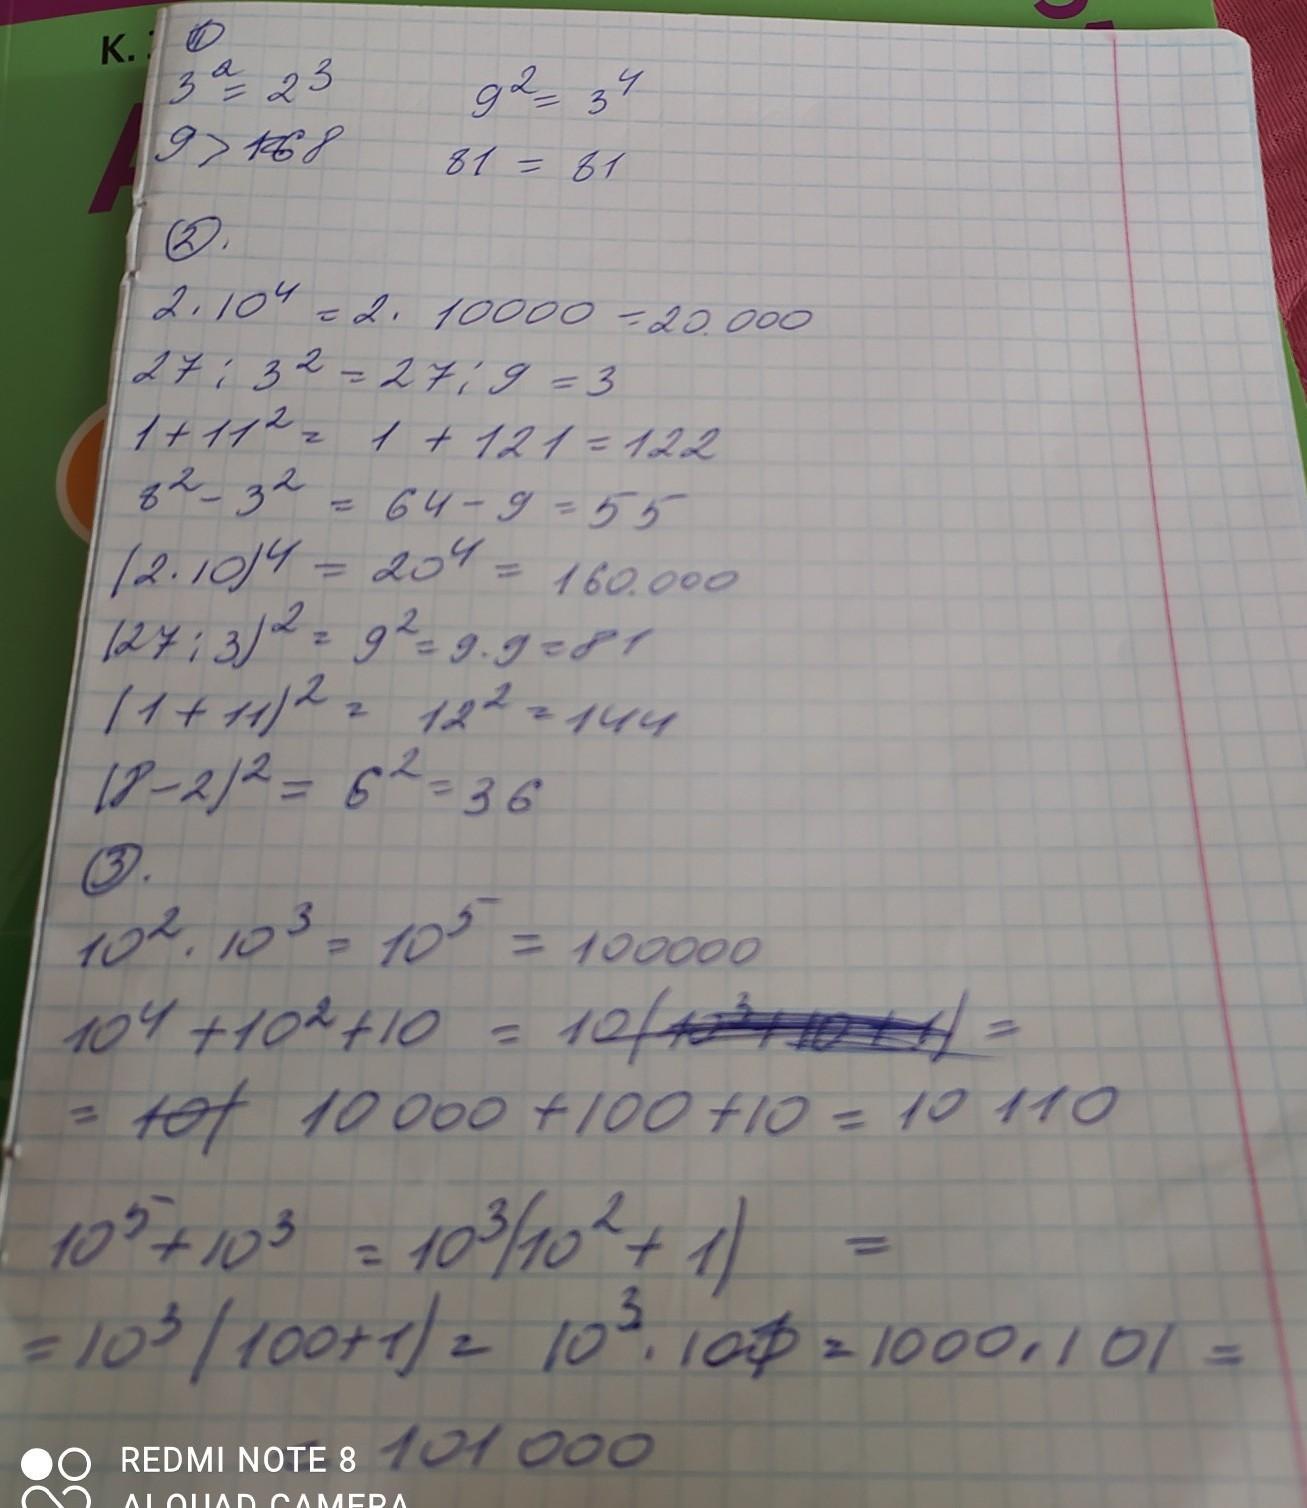 К.
①
3² = 2³ 9² = 3⁴
9 > 8 81 = 81
②.
2·10⁴ = 2· 10000 = 20.000
27 : 3² = 27 : 9 = 3
1 + 11² = 1 + 121 = 122
8² - 3² = 64 - 9 = 55
(2·10)⁴ = 20⁴ = 160.000
(27 : 3)² = 9² = 9·9 = 81
(1 + 11)² = 12² = 144
(8 - 2)² = 6² = 36
③.
10² · 10³ = 10⁵ = 100000
10⁴ + 10² + 10 = 10(10³ + 10 + 1) =
= 10( 10 000 + 100 + 10 = 10 110
10⁵ + 10³ = 10³(10² + 1) =
= 10³ (100+1) = 10³ · 101 = 1000 · 101 =
= 101 000
REDMI NOTE 8
AI QUAD CAMERA